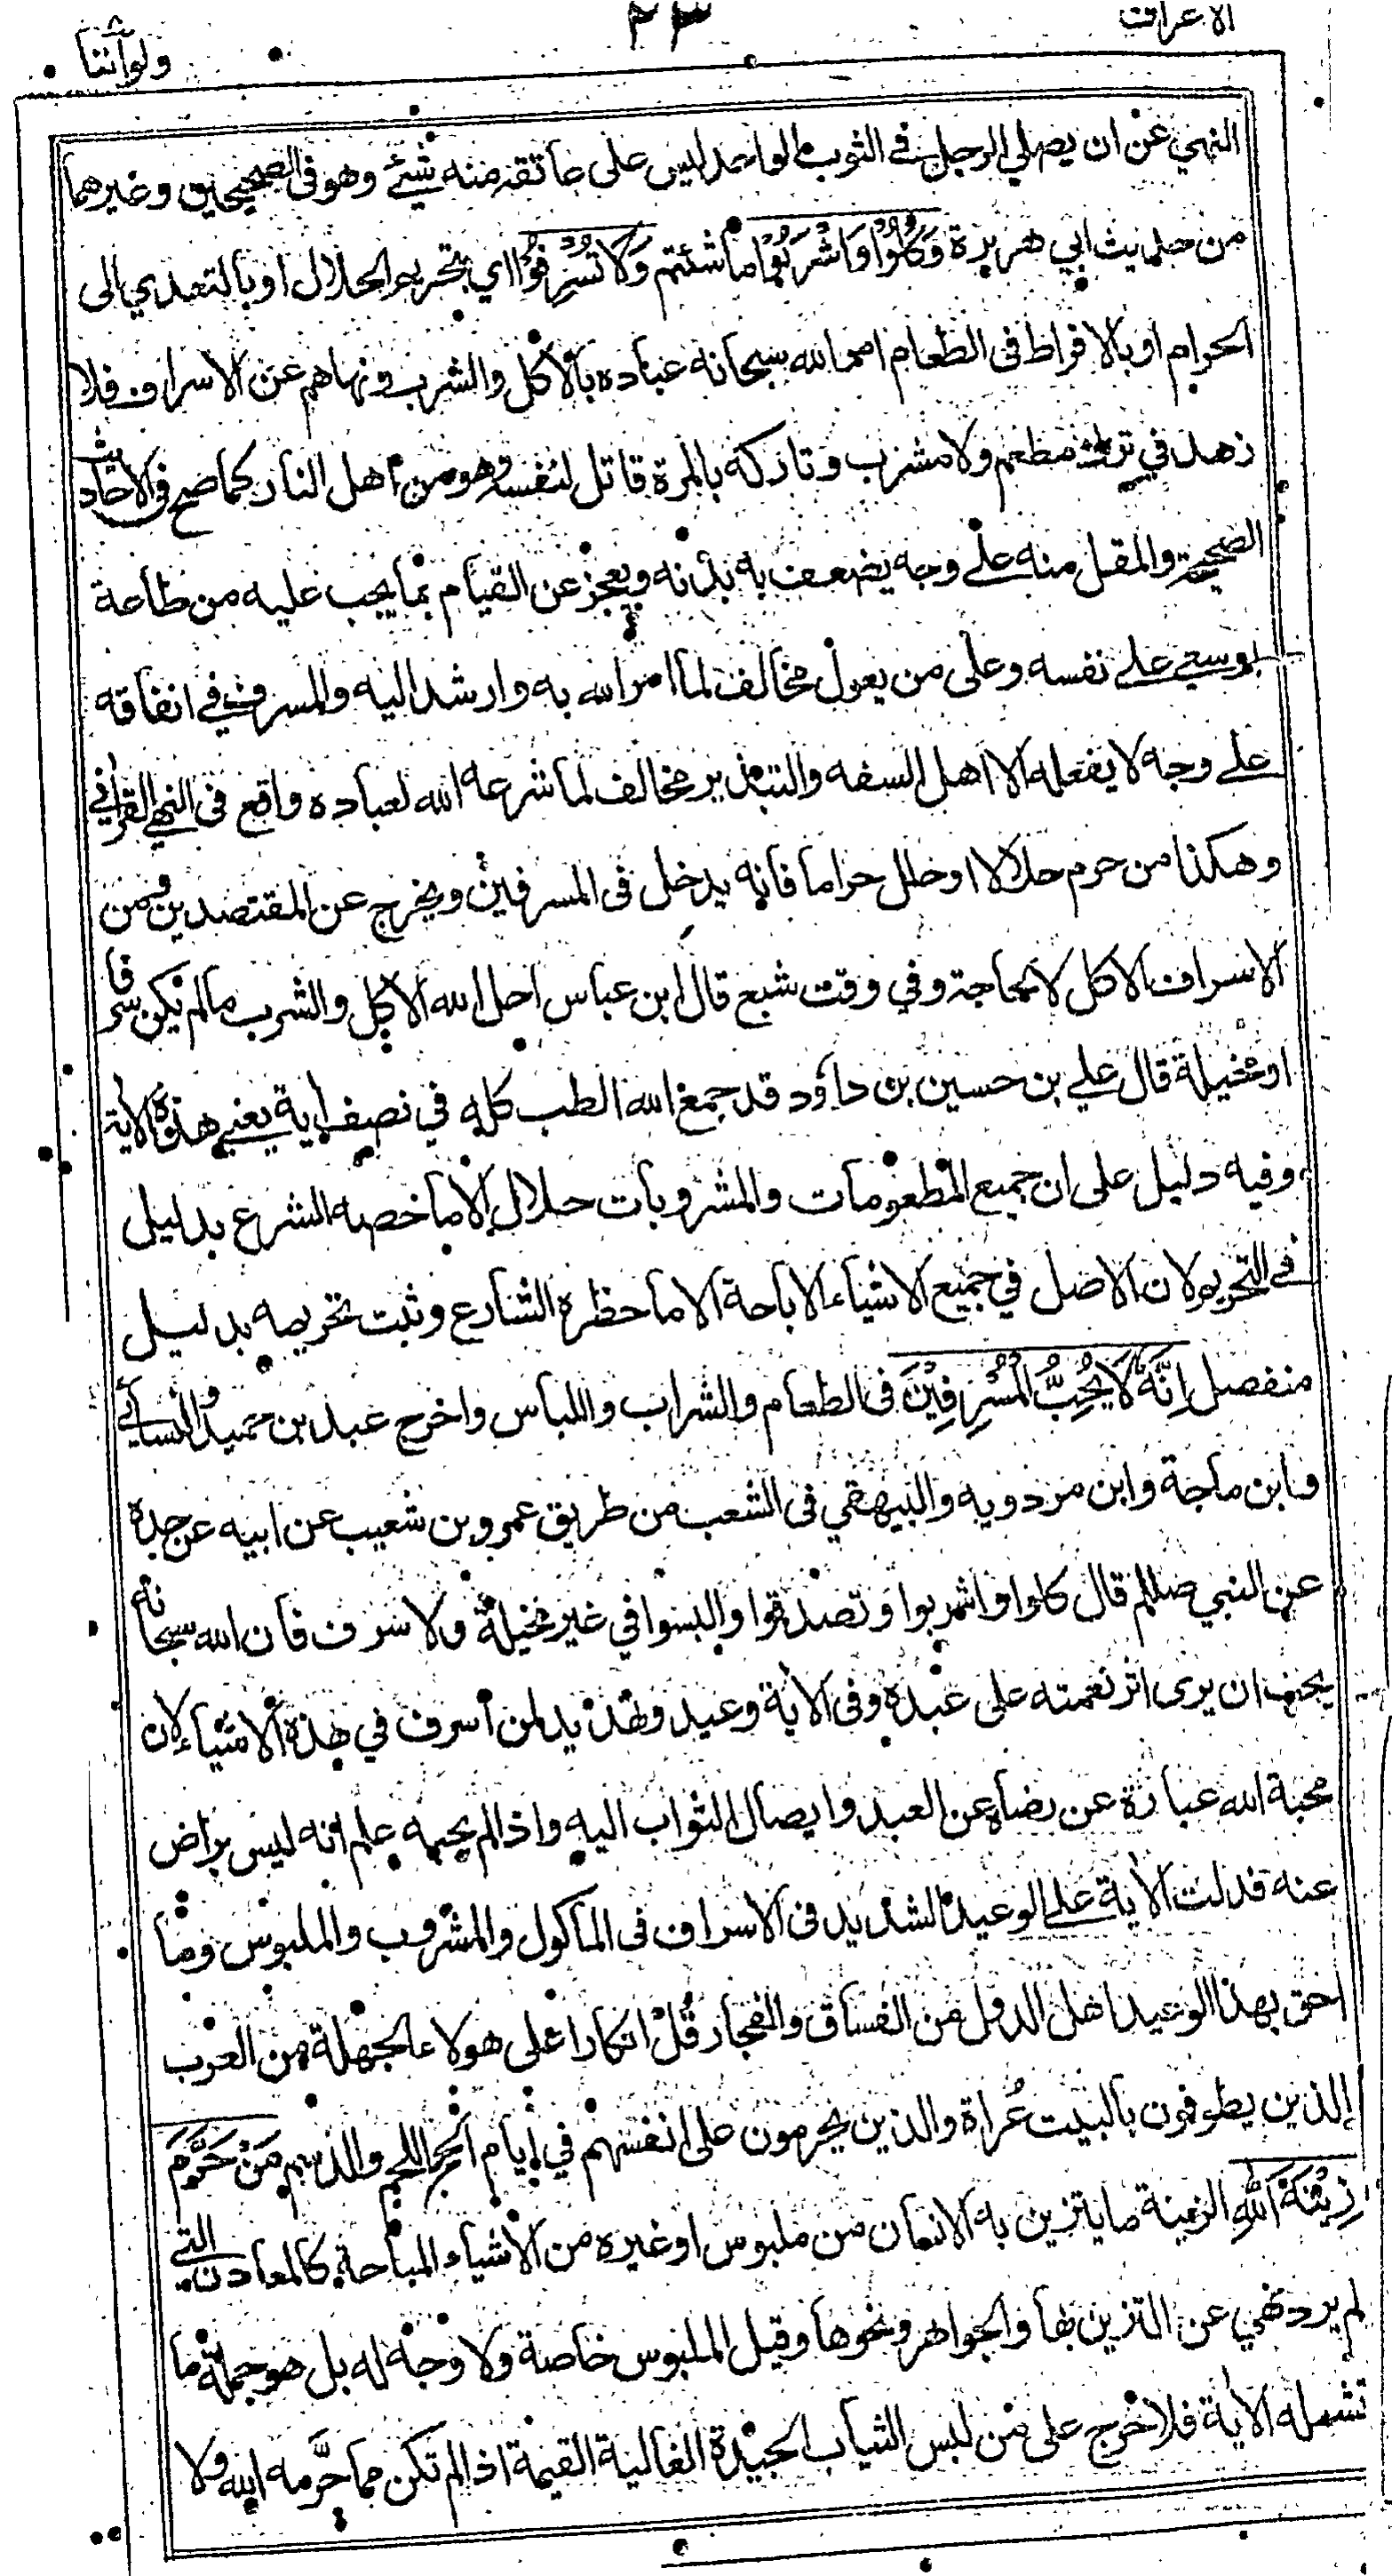 الاعراف
٢٣
ولواننا
النهي عن ان يصلي الرجل في الثوب الواحد ليس على عاتقه منه شئ وهو فى الصحيحين وغيرهما
من حديث ابي هريرة وَكُلُوْا وَاشْرَبُوْا ما شئتم وَلَا تُسْرِفُوْا اي بتحريم الحلال او بالتعدي الى
الحرام او بالافراط فى الطعام امر الله سبحانه عباده بالاكل والشرب ونهاهم عن الاسراف فلا
زهد في ترك مطعم ولا مشرب وتاركه بالمرة قاتل لنفسه وهو من اهل النار كما صح في الاحاديث
الصحيحة والمقل منه على وجه يضعف به بدنه ويعجز عن القيام بما يجب عليه من طاعة
او سعي على نفسه وعلى من يعول مخالف لما امر الله به وارشد اليه والمسرف في انفاقه
على وجه لا يفعله الا اهل السفه والتبذير مخالف لما شرعه الله لعباده واقع فى النهي القراني
وهكذا من حرم حلالا او حلل حراما فانه يدخل فى المسرفين ويخرج عن المقتصدين ومن
الاسراف الاكل لا لحاجة وفي وقت شبع قال ابن عباس احل الله الاكل والشرب ما لم يكن سرفا
او مخيلة قال علي بن حسين بن داؤد قد جمع الله الطب كله في نصف اية يعني هذه الاية
وفيه دليل على ان جميع المطعومات والمشروبات حلال الا ما خصه الشرع بدليل
في التحريم لان الاصل في جميع الاشياء الاباحة الا ما حظره الشارع وثبت تحريمه بدليل
منفصل اِنَّهٗ لَا يُحِبُّ الْمُسْرِفِيْنَ فى الطعام والشراب واللباس واخرج عبد بن حميد والنسائي
وابن ماجة وابن مردويه والبيهقي فى الشعب من طريق عمرو بن شعيب عن ابيه عن جده
عن النبي صللم قال كلوا واشربوا وتصدقوا والبسوا في غير مخيلة ولا سرف فان الله سبحانه
يحب ان يرى اثر نعمته على عبده وفى الاية وعيد وتهديد لمن اسرف في هذه الاشياء لان
محبة الله عبارة عن رضاه عن العبد وايصال الثواب اليه واذا لم يحبه علم انه ليس براض
عنه فدلت الاية على الوعيد الشديد فى الاسراف فى الماكول والمشروب والملبوس وما
احق بهذا الوعيد اهل الدول من الفساق والفجار قُلْ انكارا على هولاء الجهلة من العرب
الذين يطوفون بالبيت عُراة والذين يحرمون على انفسهم في ايام الحج اللحم والدسم مَنْ حَرَّمَ
زِيْنَةَ اللّٰهِ الزينة ما يتزين به الانسان من ملبوس او غيره من الاشياء المباحة كالمعادن التي
لم يرد نهي عن التزين بها والجواهر ونحوها وقيل الملبوس خاصة ولا وجه له بل هو جملة ما
تشمله الاية فلا حرج على من لبس الثياب الجيدة الغالية القيمة اذا لم تكن مما حرَّمه الله ولا